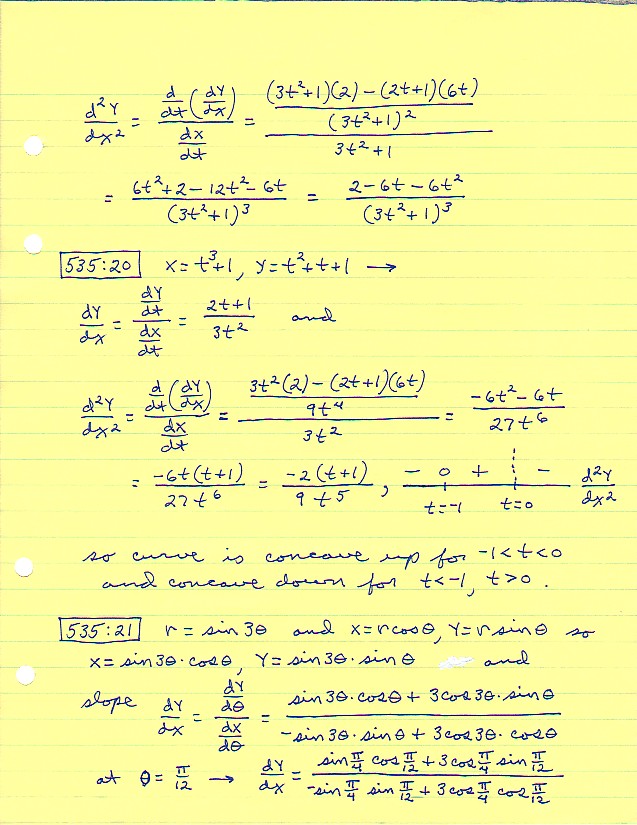 d²y/dx² = (d/dt(dy/dx))/(dx/dt) = (((3t²+1)(2) - (2t+1)(6t))/(3t²+1)²)/(3t²+1)
= (6t²+2-12t²-6t)/(3t²+1)³ = (2-6t-6t²)/(3t²+1)³
535:20 x = t³+1, y = t²+t+1 →
dy/dx = (dy/dt)/(dx/dt) = (2t+1)/(3t²) and
d²y/dx² = (d/dt(dy/dx))/(dx/dt) = ((3t²(2) - (2t+1)(6t))/(9t⁴))/(3t²) = (-6t²-6t)/(27t⁶)
= (-6t(t+1))/(27t⁶) = (-2(t+1))/(9t⁵), - 0 + - d²y/dx²
t=-1 t=0
so curve is concave up for -1<t<0
and concave down for t<-1, t>0.
535:21 r = sin 3θ and x = r cos θ, y = r sin θ so
x = sin 3θ · cos θ, y = sin 3θ · sin θ and
slope dy/dx = (dy/dθ)/(dx/dθ) = (sin 3θ · cos θ + 3 cos 3θ · sin θ)/(-sin 3θ · sin θ + 3 cos 3θ · cos θ)
at θ = π/12 → dy/dx = (sin π/4 cos π/12 + 3 cos π/4 sin π/12)/(-sin π/4 sin π/12 + 3 cos π/4 cos π/12)